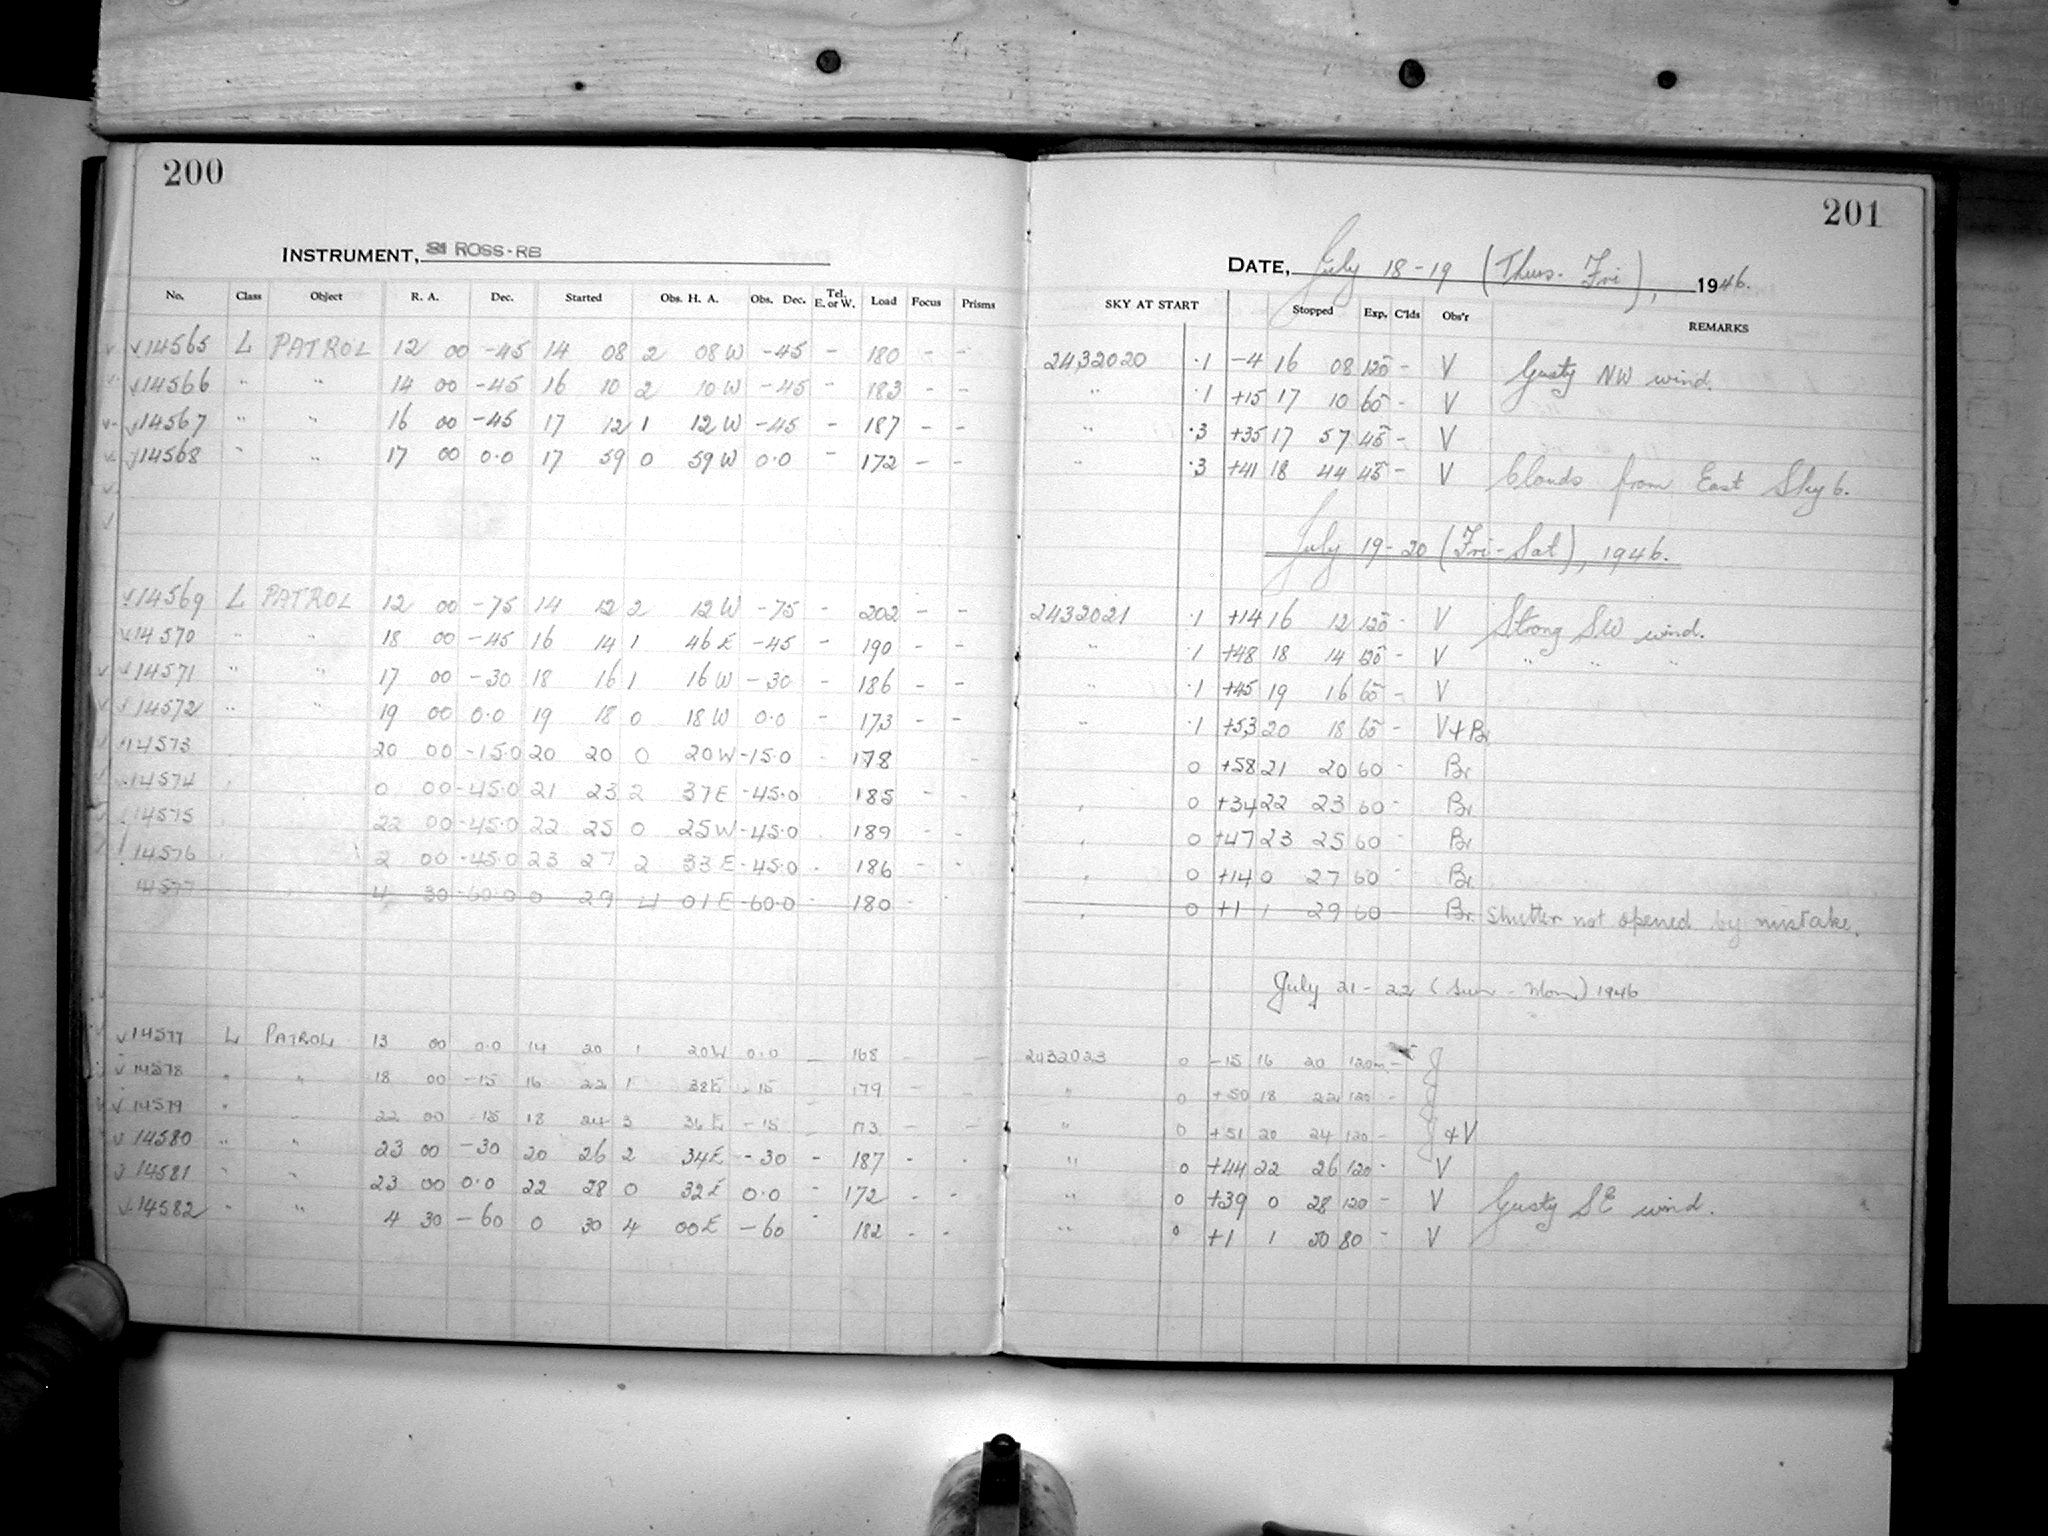 200
201
INSTRUMENT, SI ROSS-RB
DATE, July 18-19 (Thurs. Fri), 1946.
No. Class Object R. A. Dec. Started Obs. H. A. Obs. Dec. Tel. E. or W. Load Focus Prisms SKY AT START Stopped Exp. C'lds Obs'r REMARKS
√14565 L PATROL 12 00 -45 14 08 2 08 W -45 - 180 - - 2432020 .1 -4 16 08 120 - V Gusty NW wind.
√14566 " " 14 00 -45 16 10 2 10 W -45 - 183 - - " .1 +15 17 10 60 - V
√14567 " " 16 00 -45 17 12 1 12 W -45 - 187 - - " .3 +35 17 57 45 - V
√14568 " " 17 00 0.0 17 59 0 59 W 0.0 - 172 - - " .3 +41 18 44 45 - V Clouds from East Sky 6.
July 19-20 (Fri-Sat), 1946.
√14569 L PATROL 12 00 -75 14 12 2 12 W -75 - 202 - - 2432021 .1 +14 16 12 120 - V Strong SW wind.
√14570 " " 18 00 -45 16 14 1 46 E -45 - 190 - - " .1 +48 18 14 120 - V " " "
√14571 " " 17 00 -30 18 16 1 16 W -30 - 186 - - " .1 +45 19 16 60 - V
√14572 " " 19 00 0.0 19 18 0 18 W 0.0 - 173 - - " .1 +53 20 18 60 - V+Br
14573 20 00 -15.0 20 20 0 20 W -15.0 178 - 0 +58 21 20 60 - Br
14574 0 00 -45.0 21 23 2 37 E -45.0 185 - - " 0 +34 22 23 60 - Br
14575 22 00 -45.0 22 25 0 25 W -45.0 189 - - " 0 +47 23 25 60 - Br
14576 2 00 -45.0 23 27 2 33 E -45.0 186 - - " 0 +14 0 27 60 - Br
14577 4 30 -60.0 0 29 4 01 E -60.0 - 180 - " 0 +1 1 29 60 - Br. Shutter not opened by mistake.
July 21-22 (Sun - Mon) 1946
√14577 L PATROL 13 00 0.0 14 20 1 20 W 0.0 - 168 - - 2432023 0 -15 16 20 120m - J
√14578 " " 18 00 -15 16 22 1 38 E -15 179 - - " 0 +50 18 22 120 - J
√14579 " " 22 00 -15 18 24 3 36 E -15 - 173 - - " 0 +51 20 24 120 - J+V
√14580 " " 23 00 -30 20 26 2 34 E -30 - 187 - - " 0 +44 22 26 120 - V
√14581 " " 23 00 0.0 22 28 0 32 E 0.0 - 172 - - " 0 +39 0 28 120 - V Gusty SE wind.
√14582 " " 4 30 -60 0 30 4 00 E -60 - 182 - - " 0 +1 1 50 80 - V